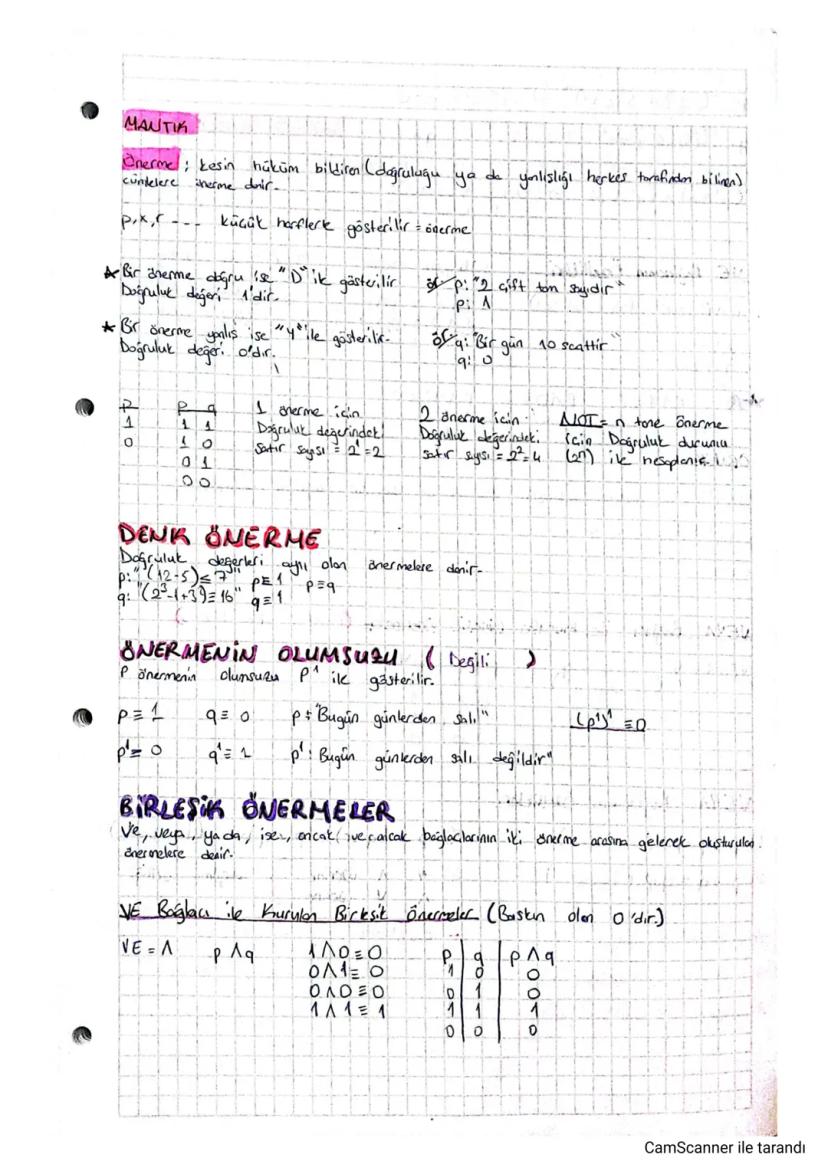 MANTIK
Önerme ; kesin hüküm bildiren (doğruluğu ya da yanlışlığı herkes tarafından bilinen)
cümlelere önerme denir.
p,x,r --- küçük harflerle gösterilir = önerme
★ Bir önerme doğru ise "D" ile gösterilir
Doğruluk değeri 1'dir.
ör/ p: "2 çift tam sayıdır"
p: 1
★ Bir önerme yanlış ise "Y" ile gösterilir.
Doğruluk değeri 0'dır.
ör/ q: "Bir gün 10 saattir"
q: 0
p
1
0
p q
1 1
1 0
0 1
0 0
1 önerme için
Doğruluk değerindeki
satır sayısı = 2¹=2
2 önerme için
Doğruluk değerindeki
satır sayısı = 2²=4
NOT= n tane önerme
için Doğruluk durumu
(2n) ile hesaplanır.
DENK ÖNERME
Doğruluk değerleri aynı olan önermelere denir.
p: "(12-5)≤7" p≡1 p≡q
q: "(2³-1+3²)=16" q≡1
ÖNERMENİN OLUMSUZU ( Değili )
P önermenin olumsuzu p' ile gösterilir.
p≡1 q≡0 p: "Bugün günlerden salı" (p')' ≡0
p'≡0 q'≡1 p': Bugün günlerden salı değildir"
BİRLEŞİK ÖNERMELER
Ve, veya, ya da, ise, ancak ve ancak bağlaçlarının iki önerme arasına gelerek oluşturulan
önermelere denir.
VE Bağlacı ile Kurulan Birleşik Önermeler (Baskın olan 0'dır.)
VE = ∧ p ∧ q
1∧0≡0
0∧1≡0
0∧0≡0
1∧1≡1
p q p∧q
1 0 0
0 1 0
1 1 1
0 0 0
CamScanner ile tarandı